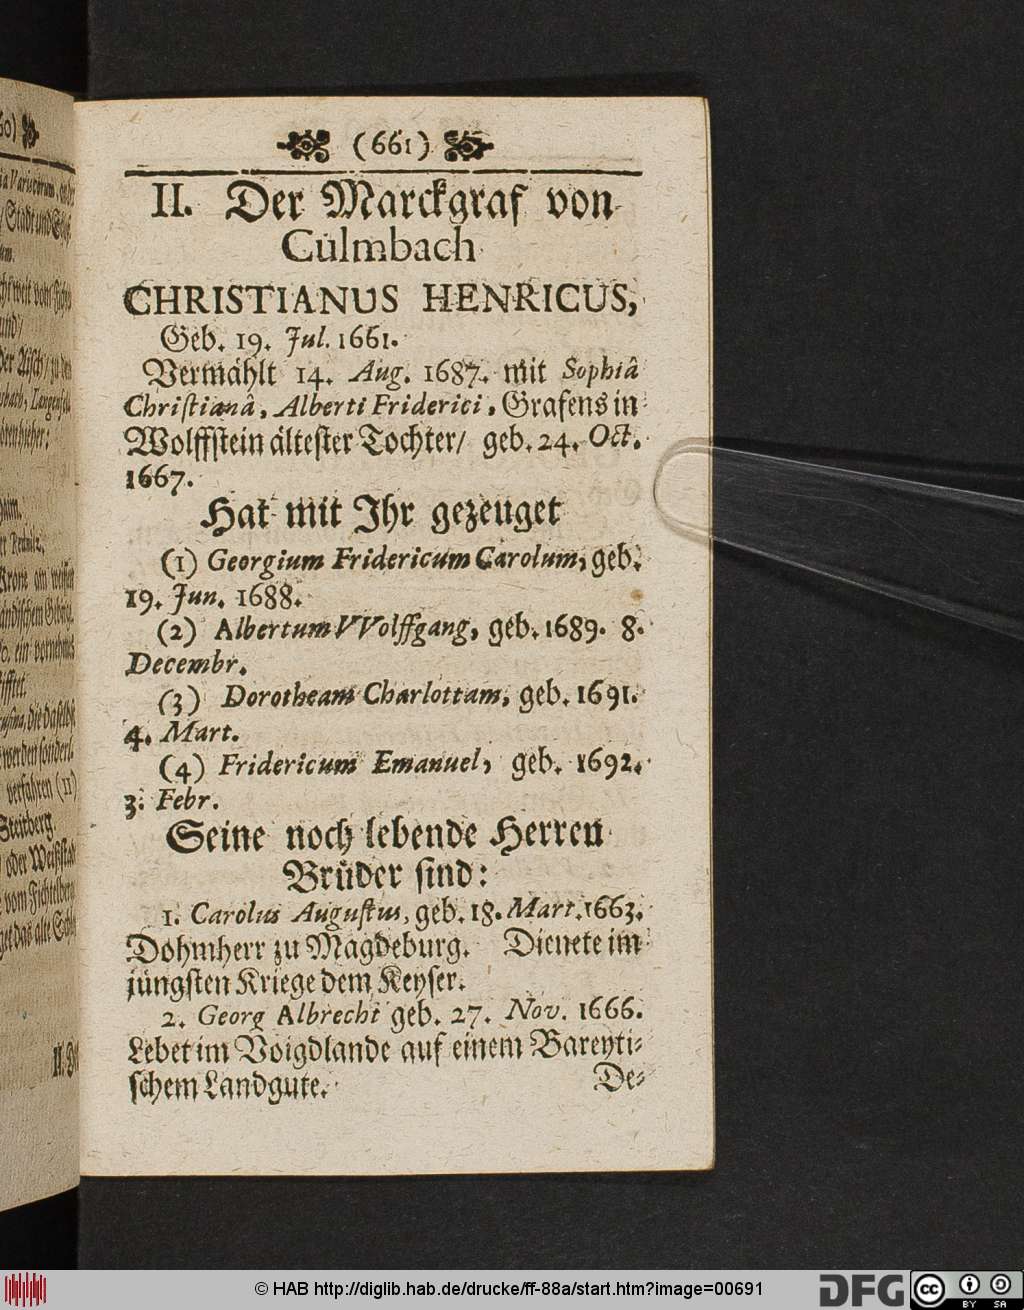 (661)
II. Der Marckgraf von
Culmbach
CHRISTIANUS HENRICUS,
Geb. 19. Jul. 1661.
Vermählt 14. Aug. 1687. mit Sophiâ
Christianâ, Alberti Friderici, Grafens in
Wolffstein ältester Tochter/ geb. 24. Oct.
1667.
Hat mit Ihr gezeuget
(1) Georgium Fridericum Carolum, geb.
19. Jun. 1688.
(2) Albertum VVolffgang, geb. 1689. 8.
Decembr.
(3) Dorotheam Charlottam, geb. 1691.
4. Mart.
(4) Fridericum Emanuel, geb. 1692.
3. Febr.
Seine noch lebende Herren
Brüder sind:
1. Carolus Augustus, geb. 18. Mart. 1663.
Dohmherr zu Magdeburg. Dienete im
jüngsten Kriege dem Keyser.
2. Georg Albrecht geb. 27. Nov. 1666.
Lebet im Voigdlande auf einem Bareyti-
schem Landgute.
De-
60)
und/
© HAB http://diglib.hab.de/drucke/ff-88a/start.htm?image=00691
DFG
cc
BY SA